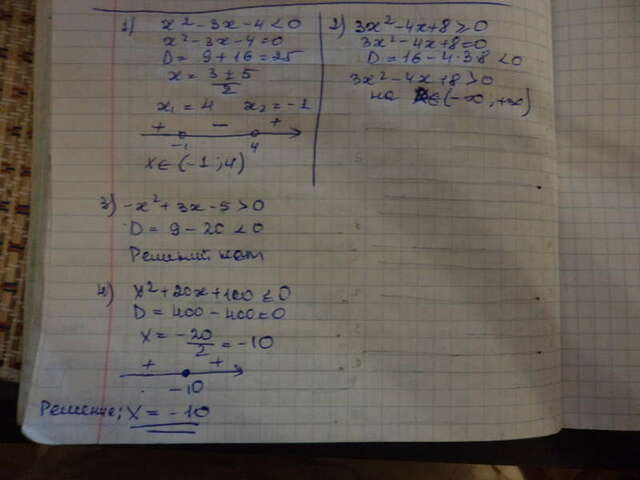 1) x² - 3x - 4 < 0
x² - 3x - 4 = 0
D = 9 + 16 = 25
x = 3 ± 5
2
x₁ = 4 x₂ = -1
+ - +
-1 4
x ∈ (-1; 4)
2) 3x² - 4x + 8 ≥ 0
3x² - 4x + 8 = 0
D = 16 - 4·3·8 < 0
3x² - 4x + 8 > 0
на x ∈ (-∞, +∞)
3) -x² + 3x - 5 > 0
D = 9 - 20 < 0
Решений нет
4) x² + 20x + 100 ≤ 0
D = 400 - 400 = 0
x = -20/2 = -10
+ +
-10
Решение: x = -10